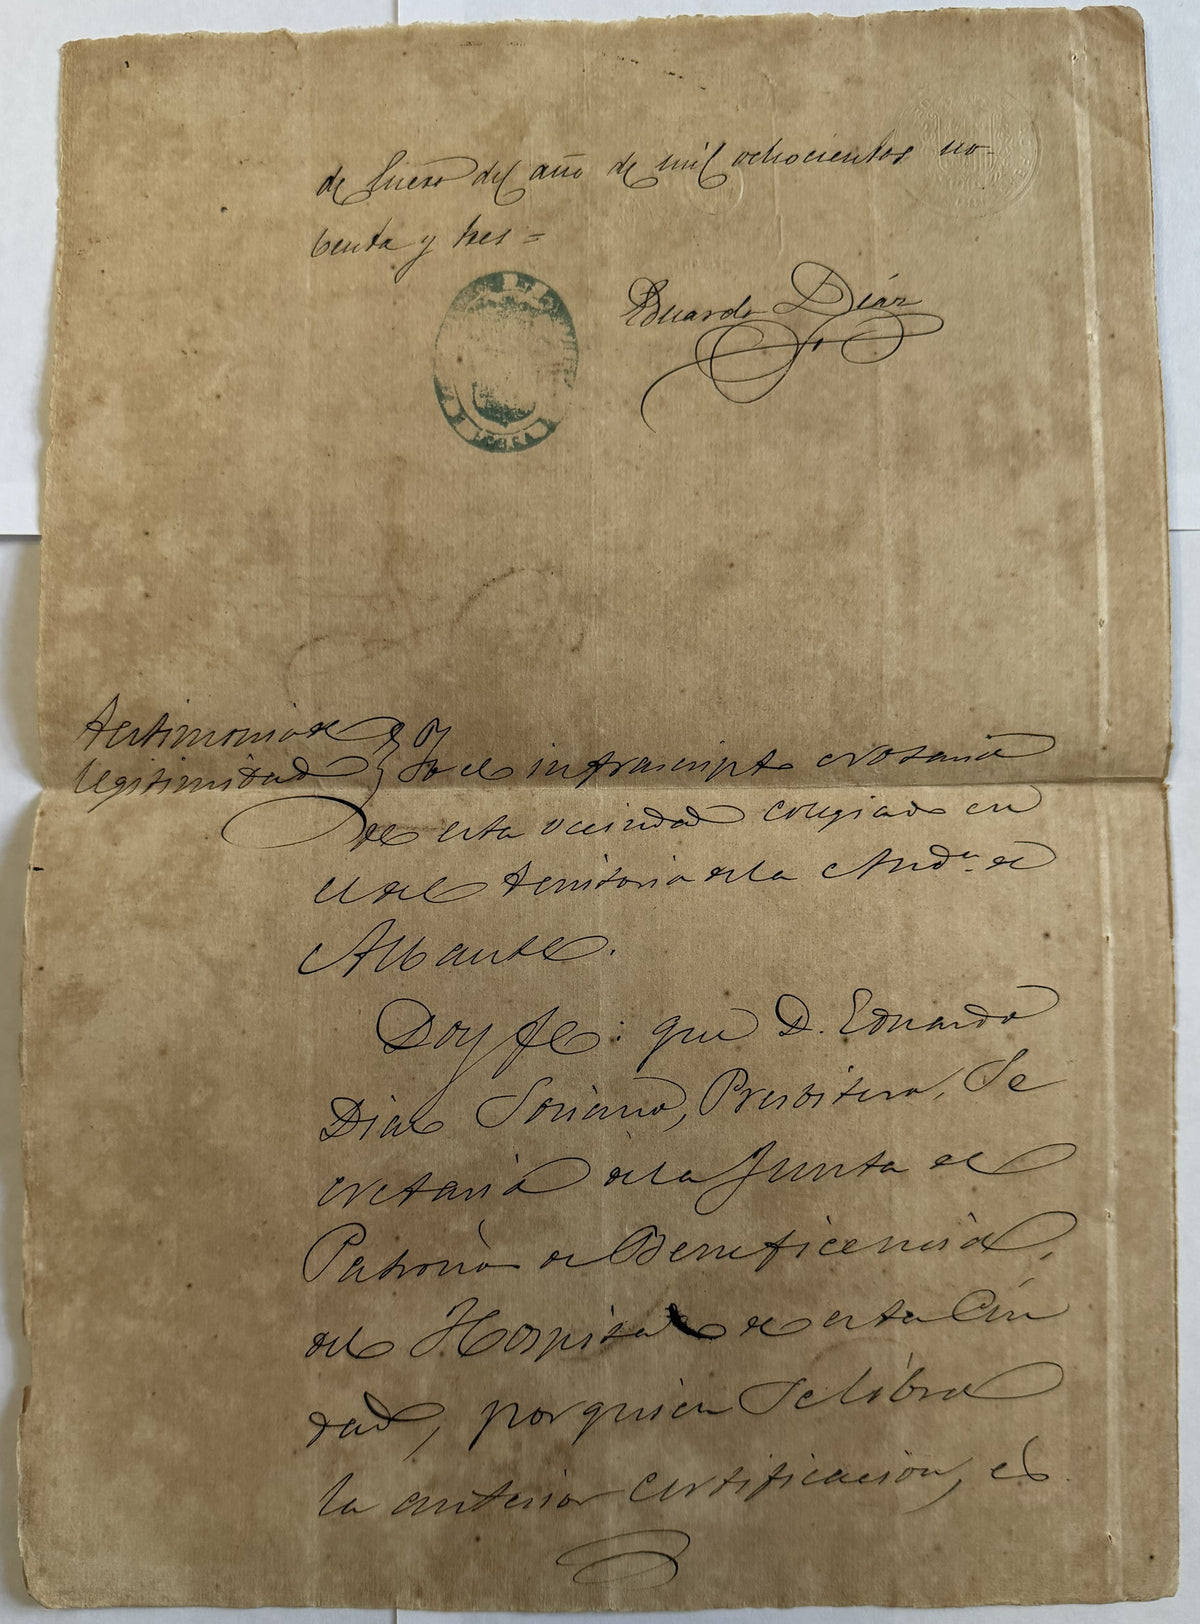 de Enero del año de mil ochocientos no-
benta y tres =
Eduardo Díaz
Testimonio de
legitimidad
Yo el infrascripto Notario
de esta vecindad colegiado en
el del territorio de la Aud.ª de
Albacete.
Doy fe: que D. Eduardo
Diaz Soriano, Presbitero, Se
cretario de la Junta de
Patronos de Beneficencia,
del Hospital de esta Ciu
dad, por quien se libra
la anterior certificacion, es